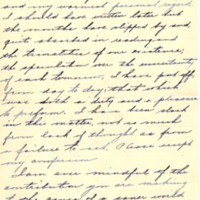 and my warmest personal regard
I should have written later but
the months have slipped by and,
quite absorbed reading and
the transition of our existence,
the speculation over the uncertainty
of each tomorrow, I have put off
from day to day that which
was both a duty and a pleasure
to perform. I have been slack
in this matter, not so much
from lack of thought as from
a failure to act. Please accept
my
I am ever mindful of the
contribution you are making
to the cause of a saner world